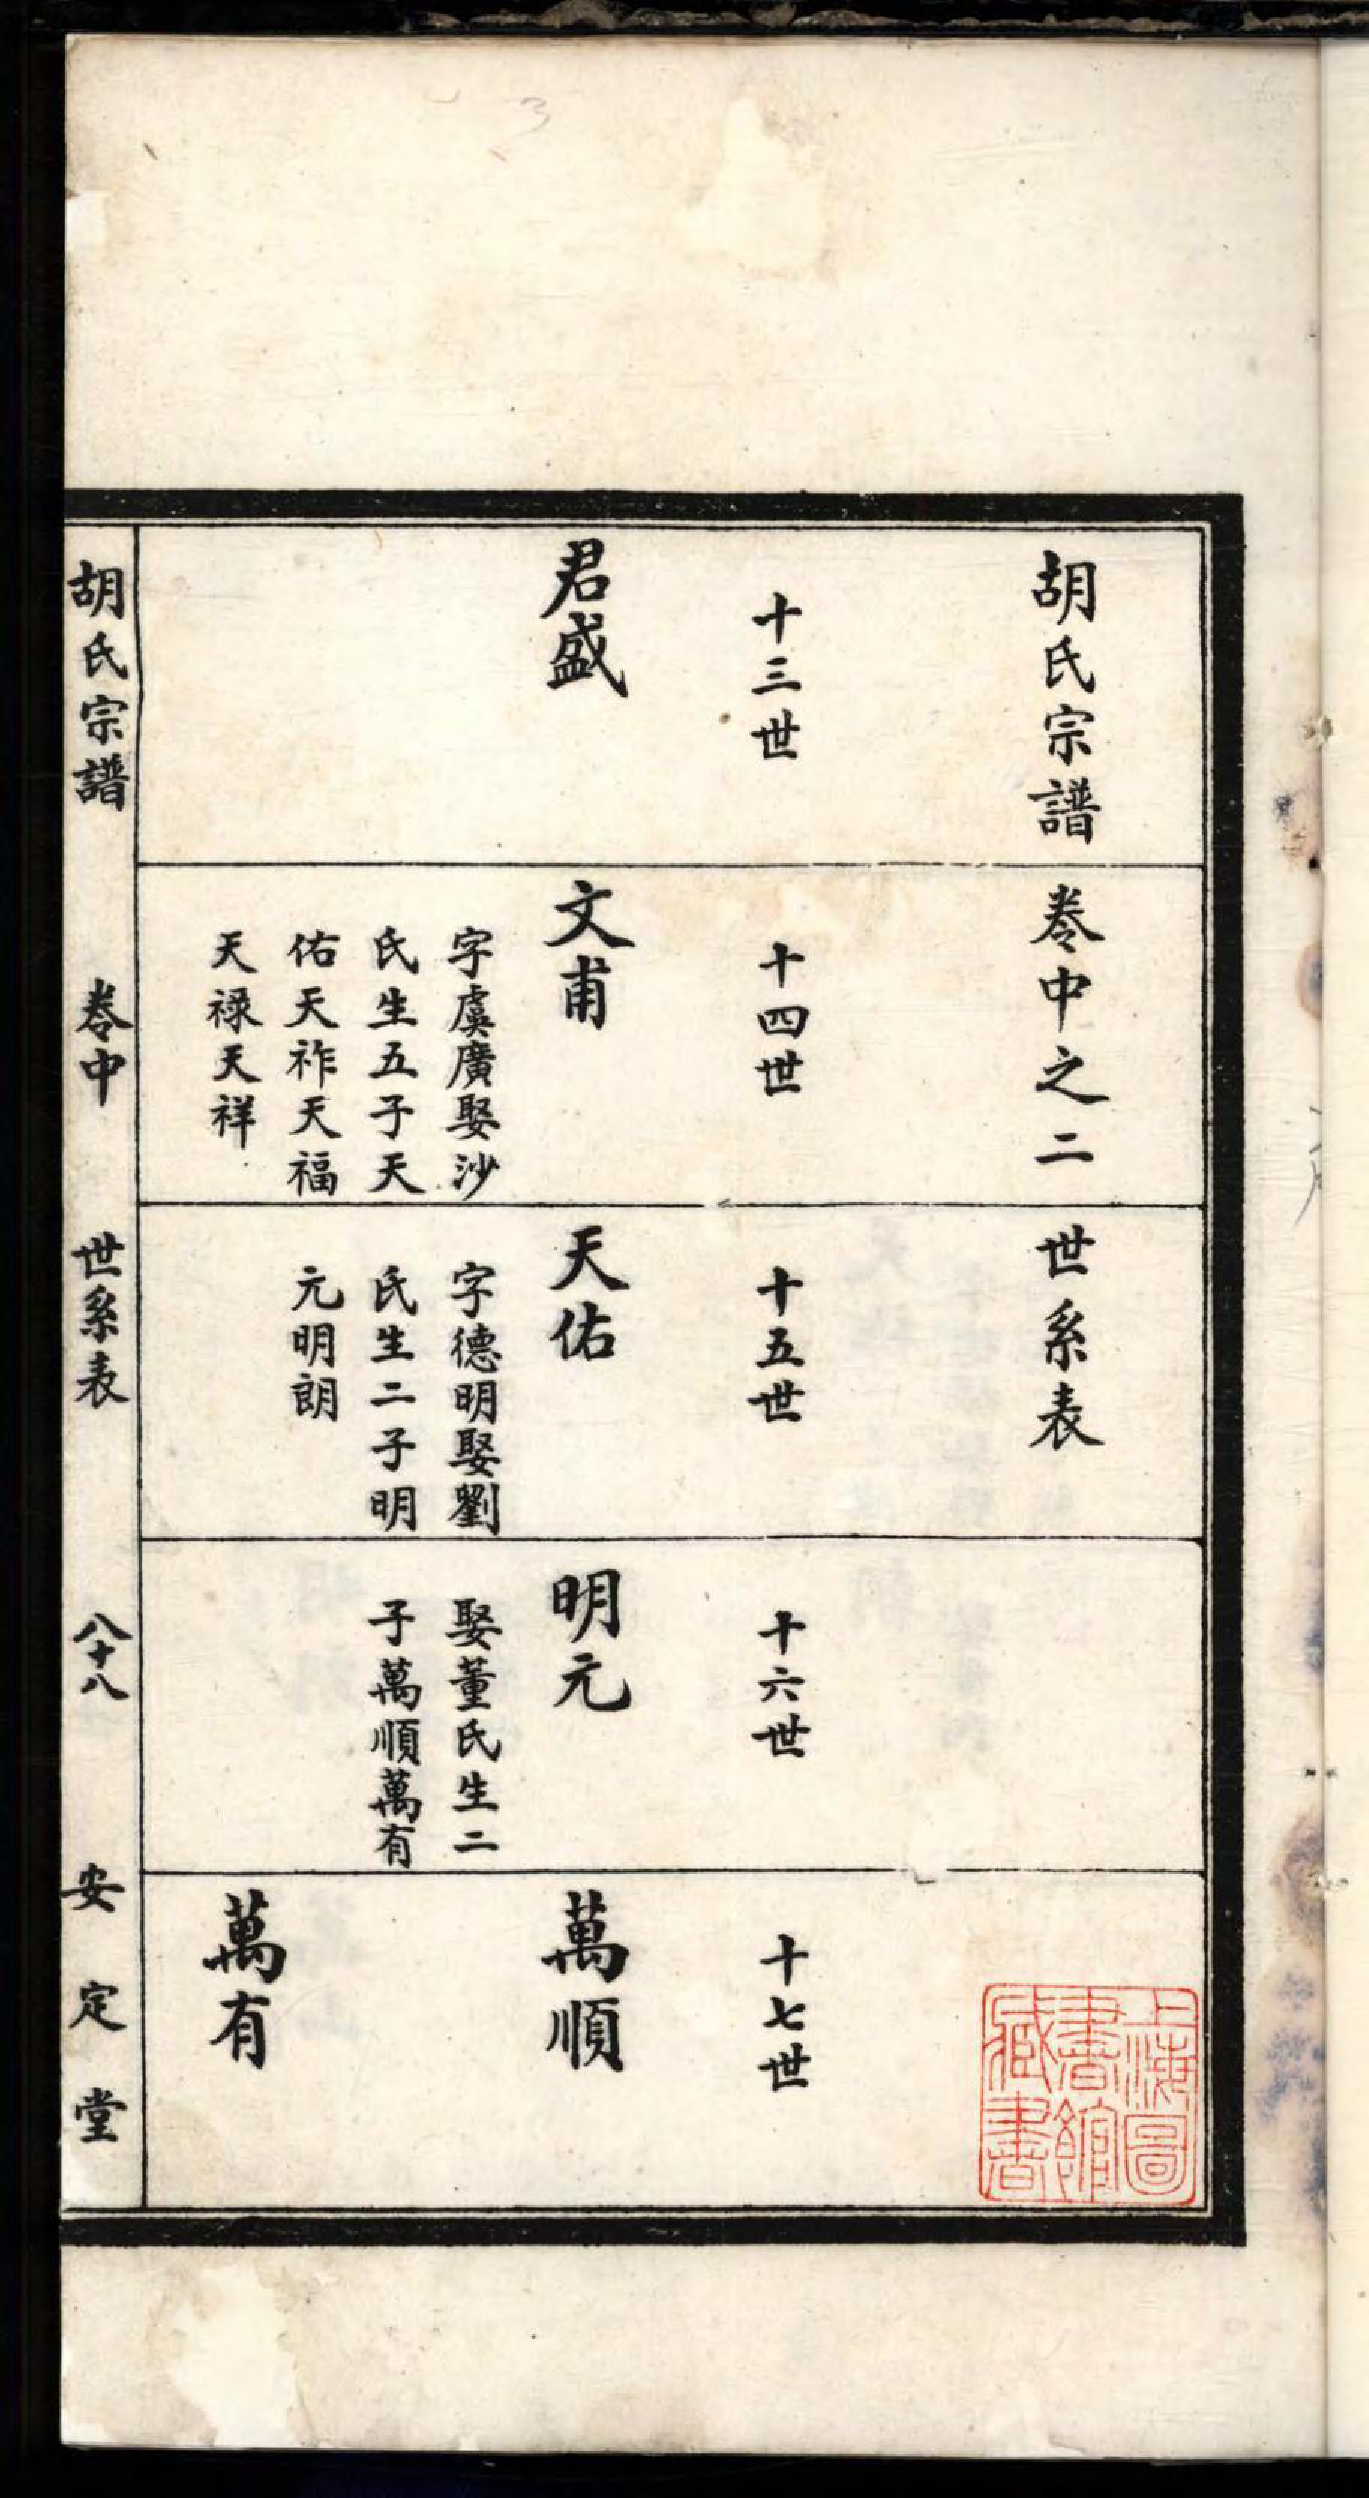 胡氏宗譜 卷中之二 世系表
十三世
十四世
十五世
十六世
十七世
君盛
文甫
字虞廣娶沙
氏生五子天
佑天祚天福
天祿天祥
天佑
字德明娶劉
氏生二子明
元明朗
明元
娶董氏生二
子萬順萬有
萬順
萬有
胡氏宗譜 卷中 世系表 八十八 安定堂
上海圖
書館
藏書